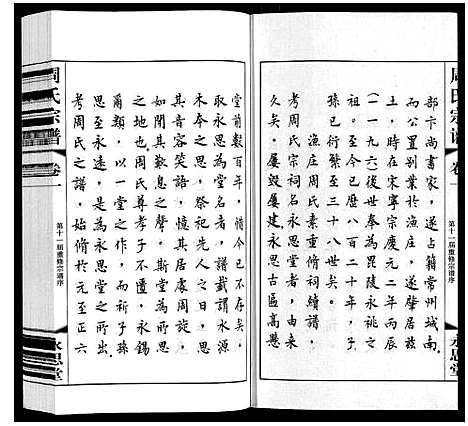 周氏宗谱
卷一
第十一届重修宗谱序
永思堂
部卞尚書家，遂占籍常州城南。
而公置别業於漁庄，遂肇居兹
土，時在宋寧宗慶元二年丙辰
（一一九六）後世奉為毘陵永祧之
祖。至今已曆八百二十年，子
孫已衍繁至三十八世矣。
漁庄周氏素重脩祠續譜，
考周氏宗祠名永思堂者，由来
久矣。屢毀屢建，永思古匾高懸
堂前數百年，惜今已不存矣。
取永思為堂名者，譜載謂水源
木本之思，祭祀先人之日，思
其音容笑語，憶其居處周旋，
致永思之敬。斯堂為周氏萃聚
之地也。周氏尊孝子不匱，永錫
爾類，以一堂之作，而祈子孫
思至永遠，是為永思堂之所出。
考周氏之譜，始脩於元至正六
周氏宗谱
卷一
第十一届重修宗谱序
永思堂